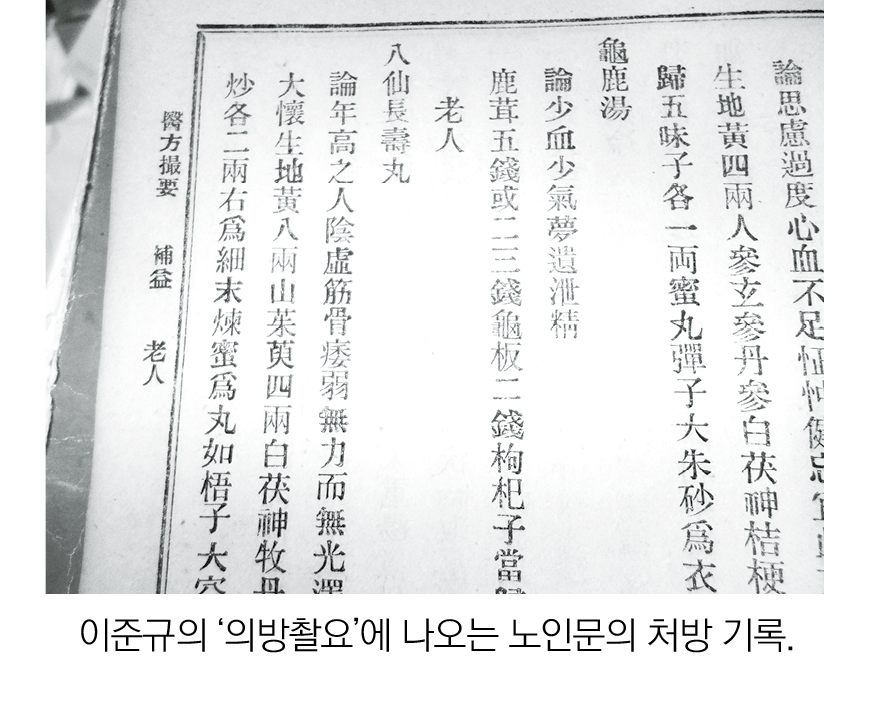 論思慮過度心血不足怔忡健忘宜
生地黃四兩人參玄參丹參白茯神桔梗
歸五味子各一両蜜丸彈子大朱砂爲衣
龜鹿湯
論少血少氣夢遺泄精
鹿茸五錢或二三錢龜板二錢枸杞子當歸
老人
八仙長壽丸
論年高之人陰虛筋骨痿弱無力而無光澤
大懷生地黃八兩山茱萸四兩白茯神牧丹
炒各二兩右爲細末煉蜜爲丸如梧子大空
醫方撮要 補益 老人
이준규의 ‘의방촬요’에 나오는 노인문의 처방 기록.